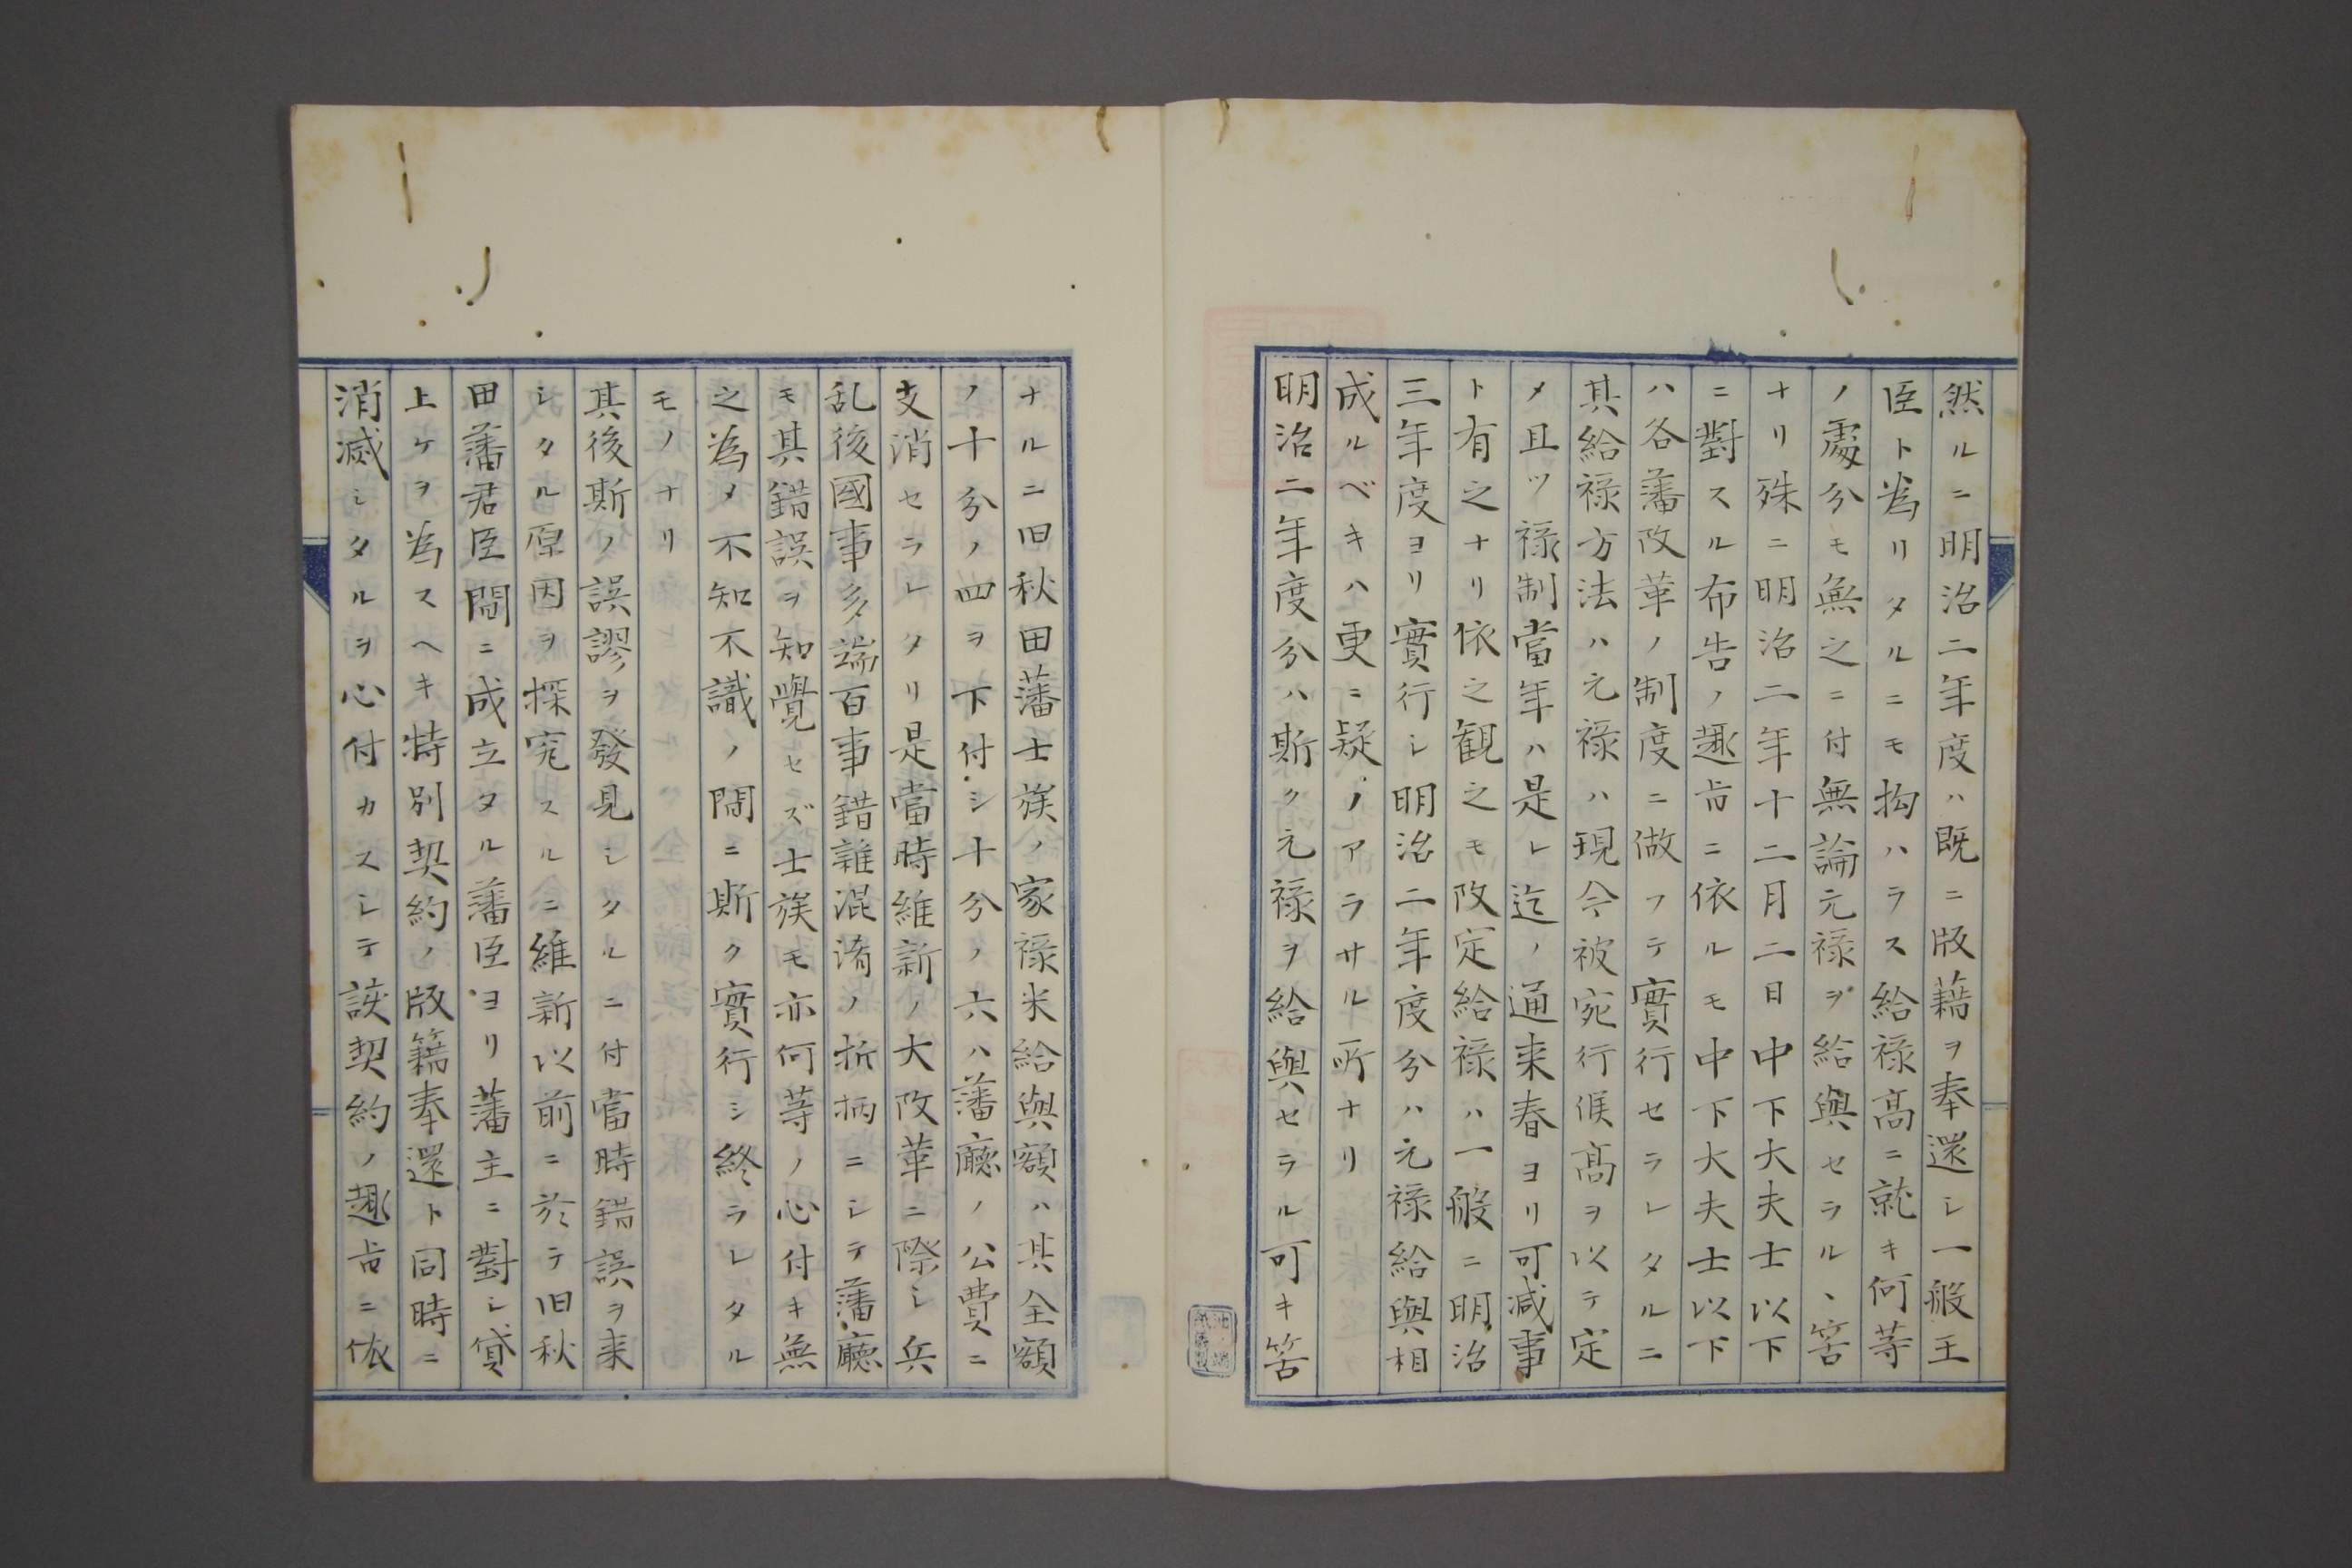 然ルニ明治二年度ハ既ニ版藉ヲ奉還シ一般王
臣ト為リタルニモ拘ハラス給禄髙ニ就キ何等
ノ處分モ無之ニ付無論元禄ヲ給與セラルヽ筈
ナリ殊ニ明治二年十二月二日中下大夫士以下
ニ對スル布告ノ趣㫖ニ依ルモ中下大夫士以下
ハ各藩改革ノ制度ニ倣フテ實行セラレタルニ
其給禄方法ハ元禄ハ現今被宛行候髙ヲ以テ定
メ且ツ禄制當年ハ是レ迄ノ通来春ヨリ可減事
ト有之ナリ依之観之モ改定給禄ハ一般ニ明治
三年度ヨリ實行シ明治二年度分ハ元禄給與相
成ルベキハ更ニ疑ノアラサル所ナリ
明治二年度分ハ斯ク元禄ヲ給與セラル可キ筈
ナルニ旧秋田藩士族ノ家禄米給與額ハ其全額
ノ十分ノ四ヲ下付シ十分ノ六ハ藩廳ノ公費ニ
支消セラレタリ是當時維新ノ大改革ニ際シ兵
乱後國事多端百事錯雜混淆ノ折柄ニシテ藩廳
モ其錯誤ヲ知覺セズ士族モ亦何等ノ心付キ無
之為メ不知不識ノ間ニ斯ク實行シ終ラレタル
モノナリ
其後斯ノ誤謬ヲ發見シタルニ付當時錯誤ヲ来
シタル原因ヲ探究スルニ維新以前ニ於テ旧秋
田藩君臣間ニ成立タル藩臣ヨリ藩主ニ對シ貸
上ケヲ為スヘキ特別契約ノ版籍奉還ト同時ニ
消滅シタルヲ心付カスシテ該契約ノ趣㫖ニ依